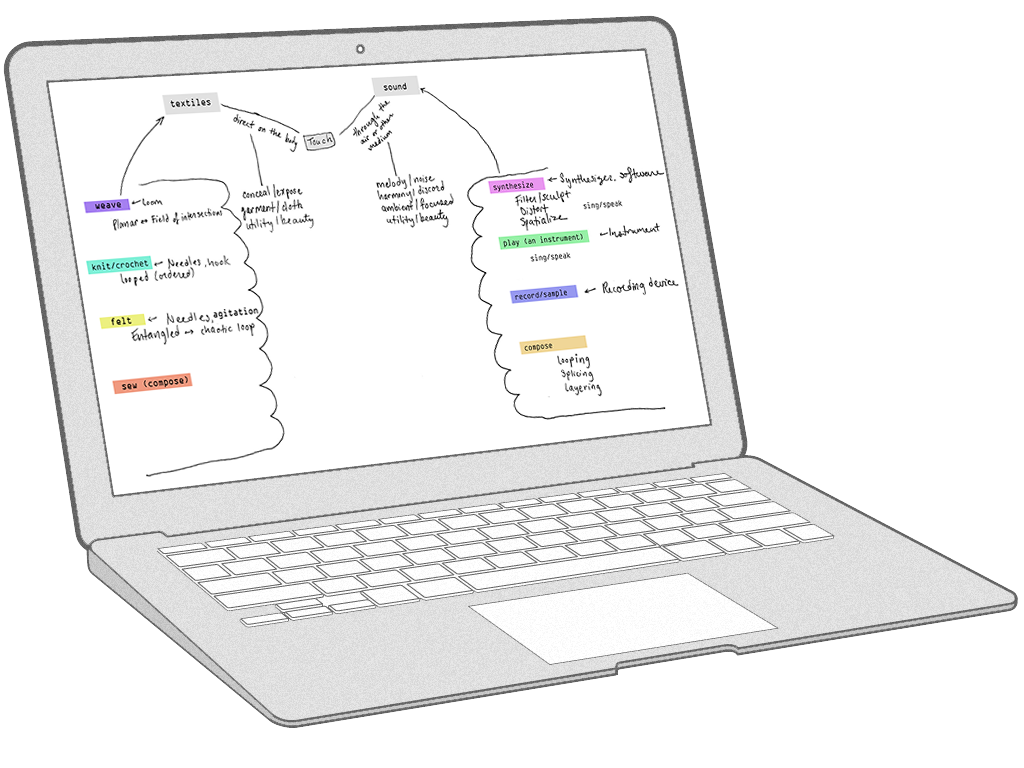 textiles
sound
direct on the body
Touch
through the
air or other
medium
conceal/expose
garment/cloth
utility/beauty
melody/noise
harmony/discord
ambient/focused
utility/beauty
weave ← Loom
Planar ↔ Field of intersections
knit/crochet ← Needles, hook
Looped (ordered)
felt ← Needles, agitation
Entangled → chaotic loop
sew (compose)
synthesize ← Synthesizer, software
Filter/sculpt
Distort
Spatialize
sing/speak
play (an instrument) ← Instrument
sing/speak
record/sample ← Recording device
compose
Looping
Splicing
Layering